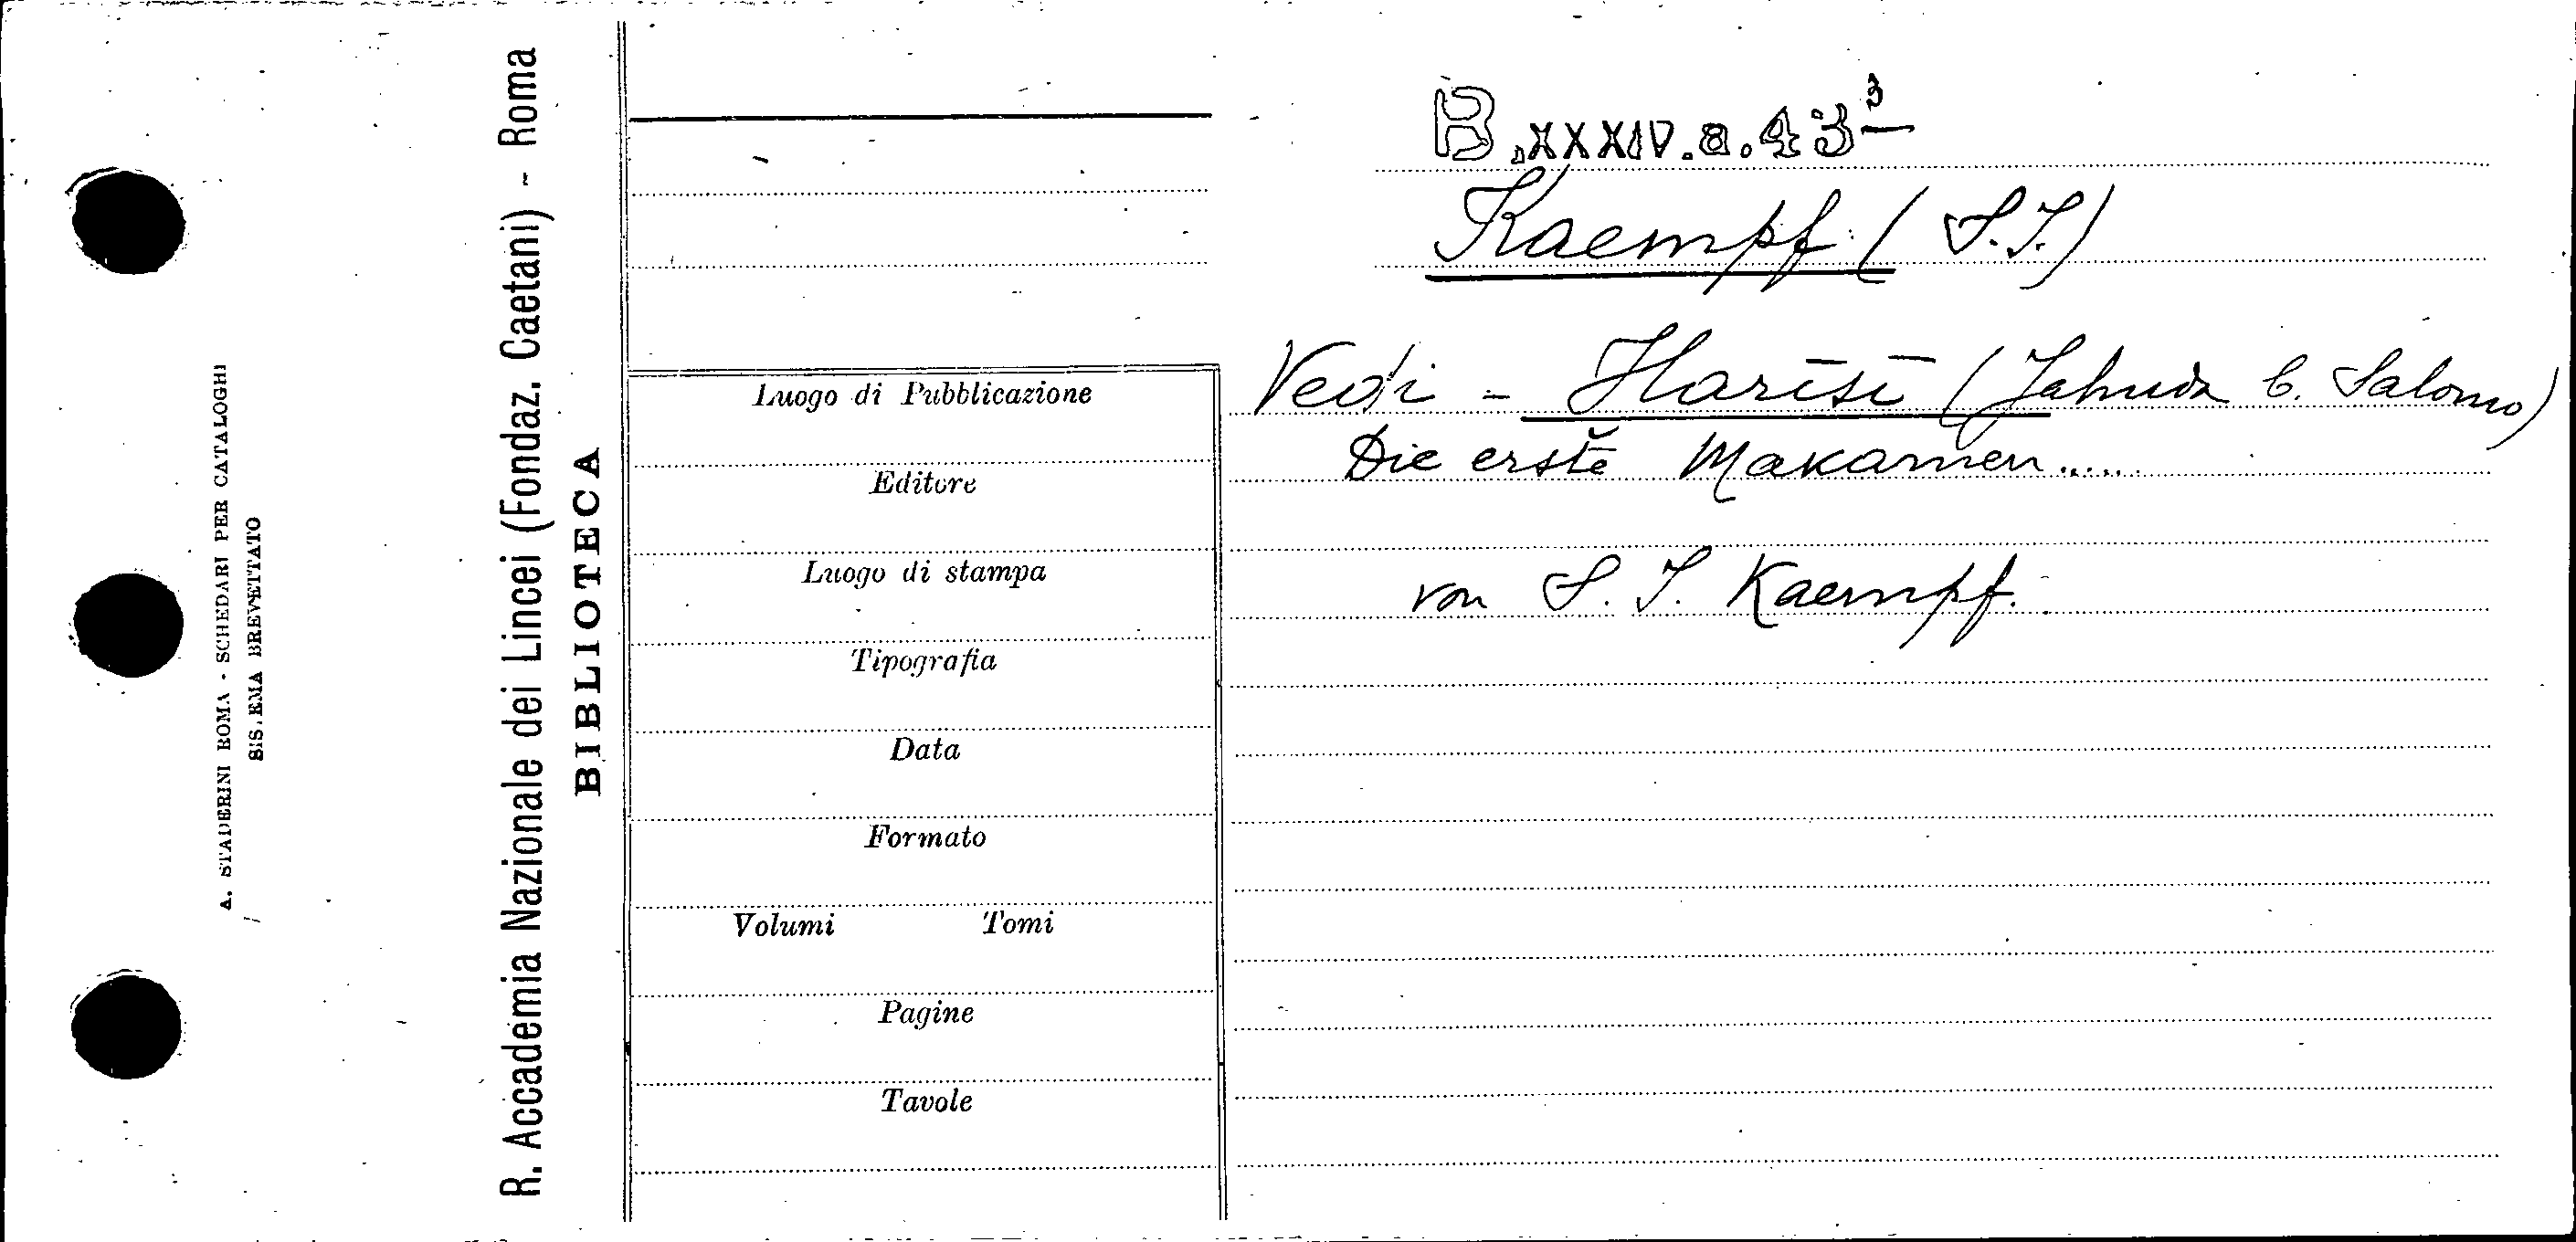 A. STADERINI ROMA - SCHEDARI PER CATALOGHI
SISTEMA BREVETTATO
R. Accademia Nazionale dei Lincei (Fondaz. Caetani) - Roma
BIBLIOTECA
Luogo di Pubblicazione
Editore
Luogo di stampa
Tipografia
Data
Formato
Volumi Tomi
Pagine
Tavole
B.XXXIV.a.43³
Kaempf (S.I.)
Vedi - Ḥarīsī (Jahuda b. Salomo)
Die erste Makamen.....
von S. I. Kaempf.